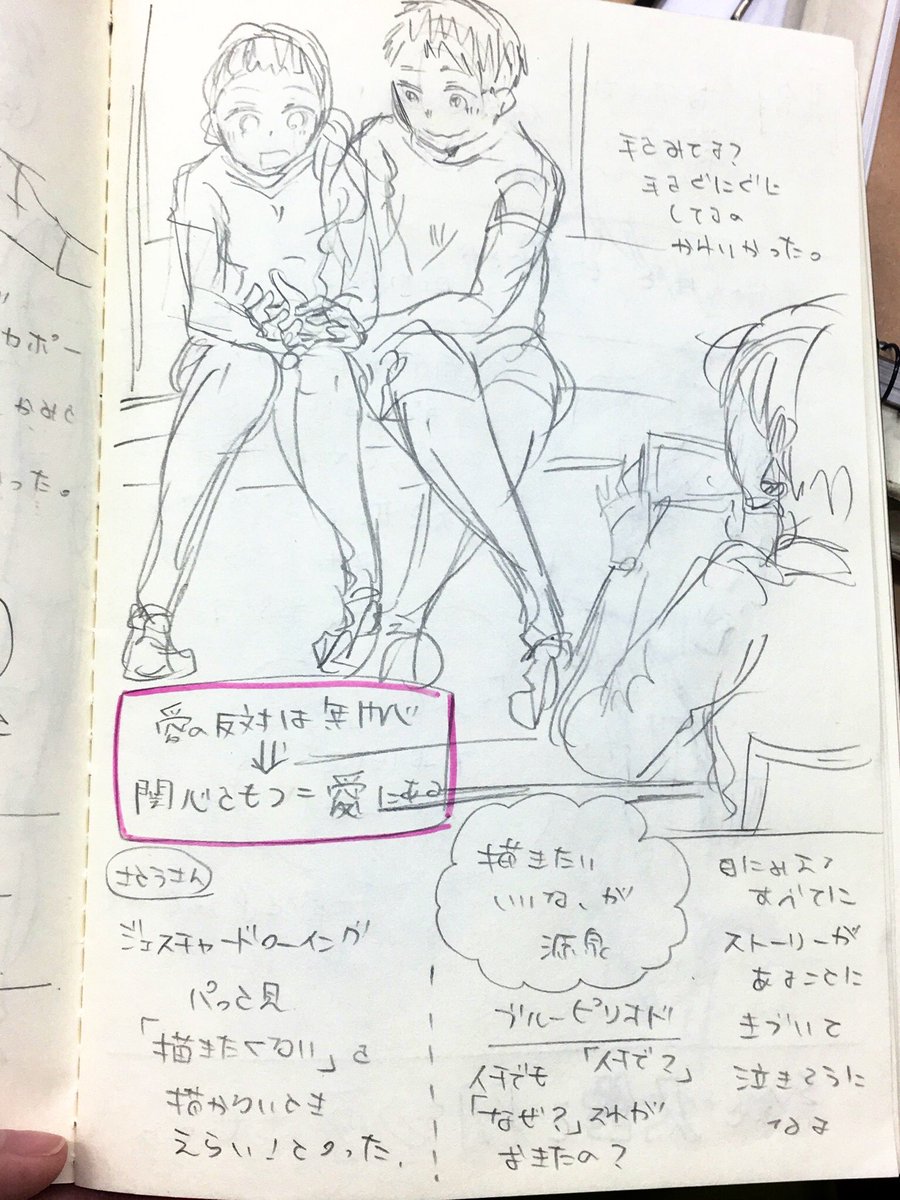 手らみてる?
まるぐにぐに
してるの
かわいかった。
ャポー
った。
愛の反対は無関心
⇓
関心をもつ=愛にある
さとうさん
ジェスチャードローイング
パっと見
「描きたくない」を
描かないとき
えらい!となった.
描きたい
いいな、が
源泉
ブルーピリオド
何でも「何で?」
「なぜ?」それが
おきたの?
目にみえる
すべてに
ストーリーが
あることに
きづいて
泣きそうに
なる